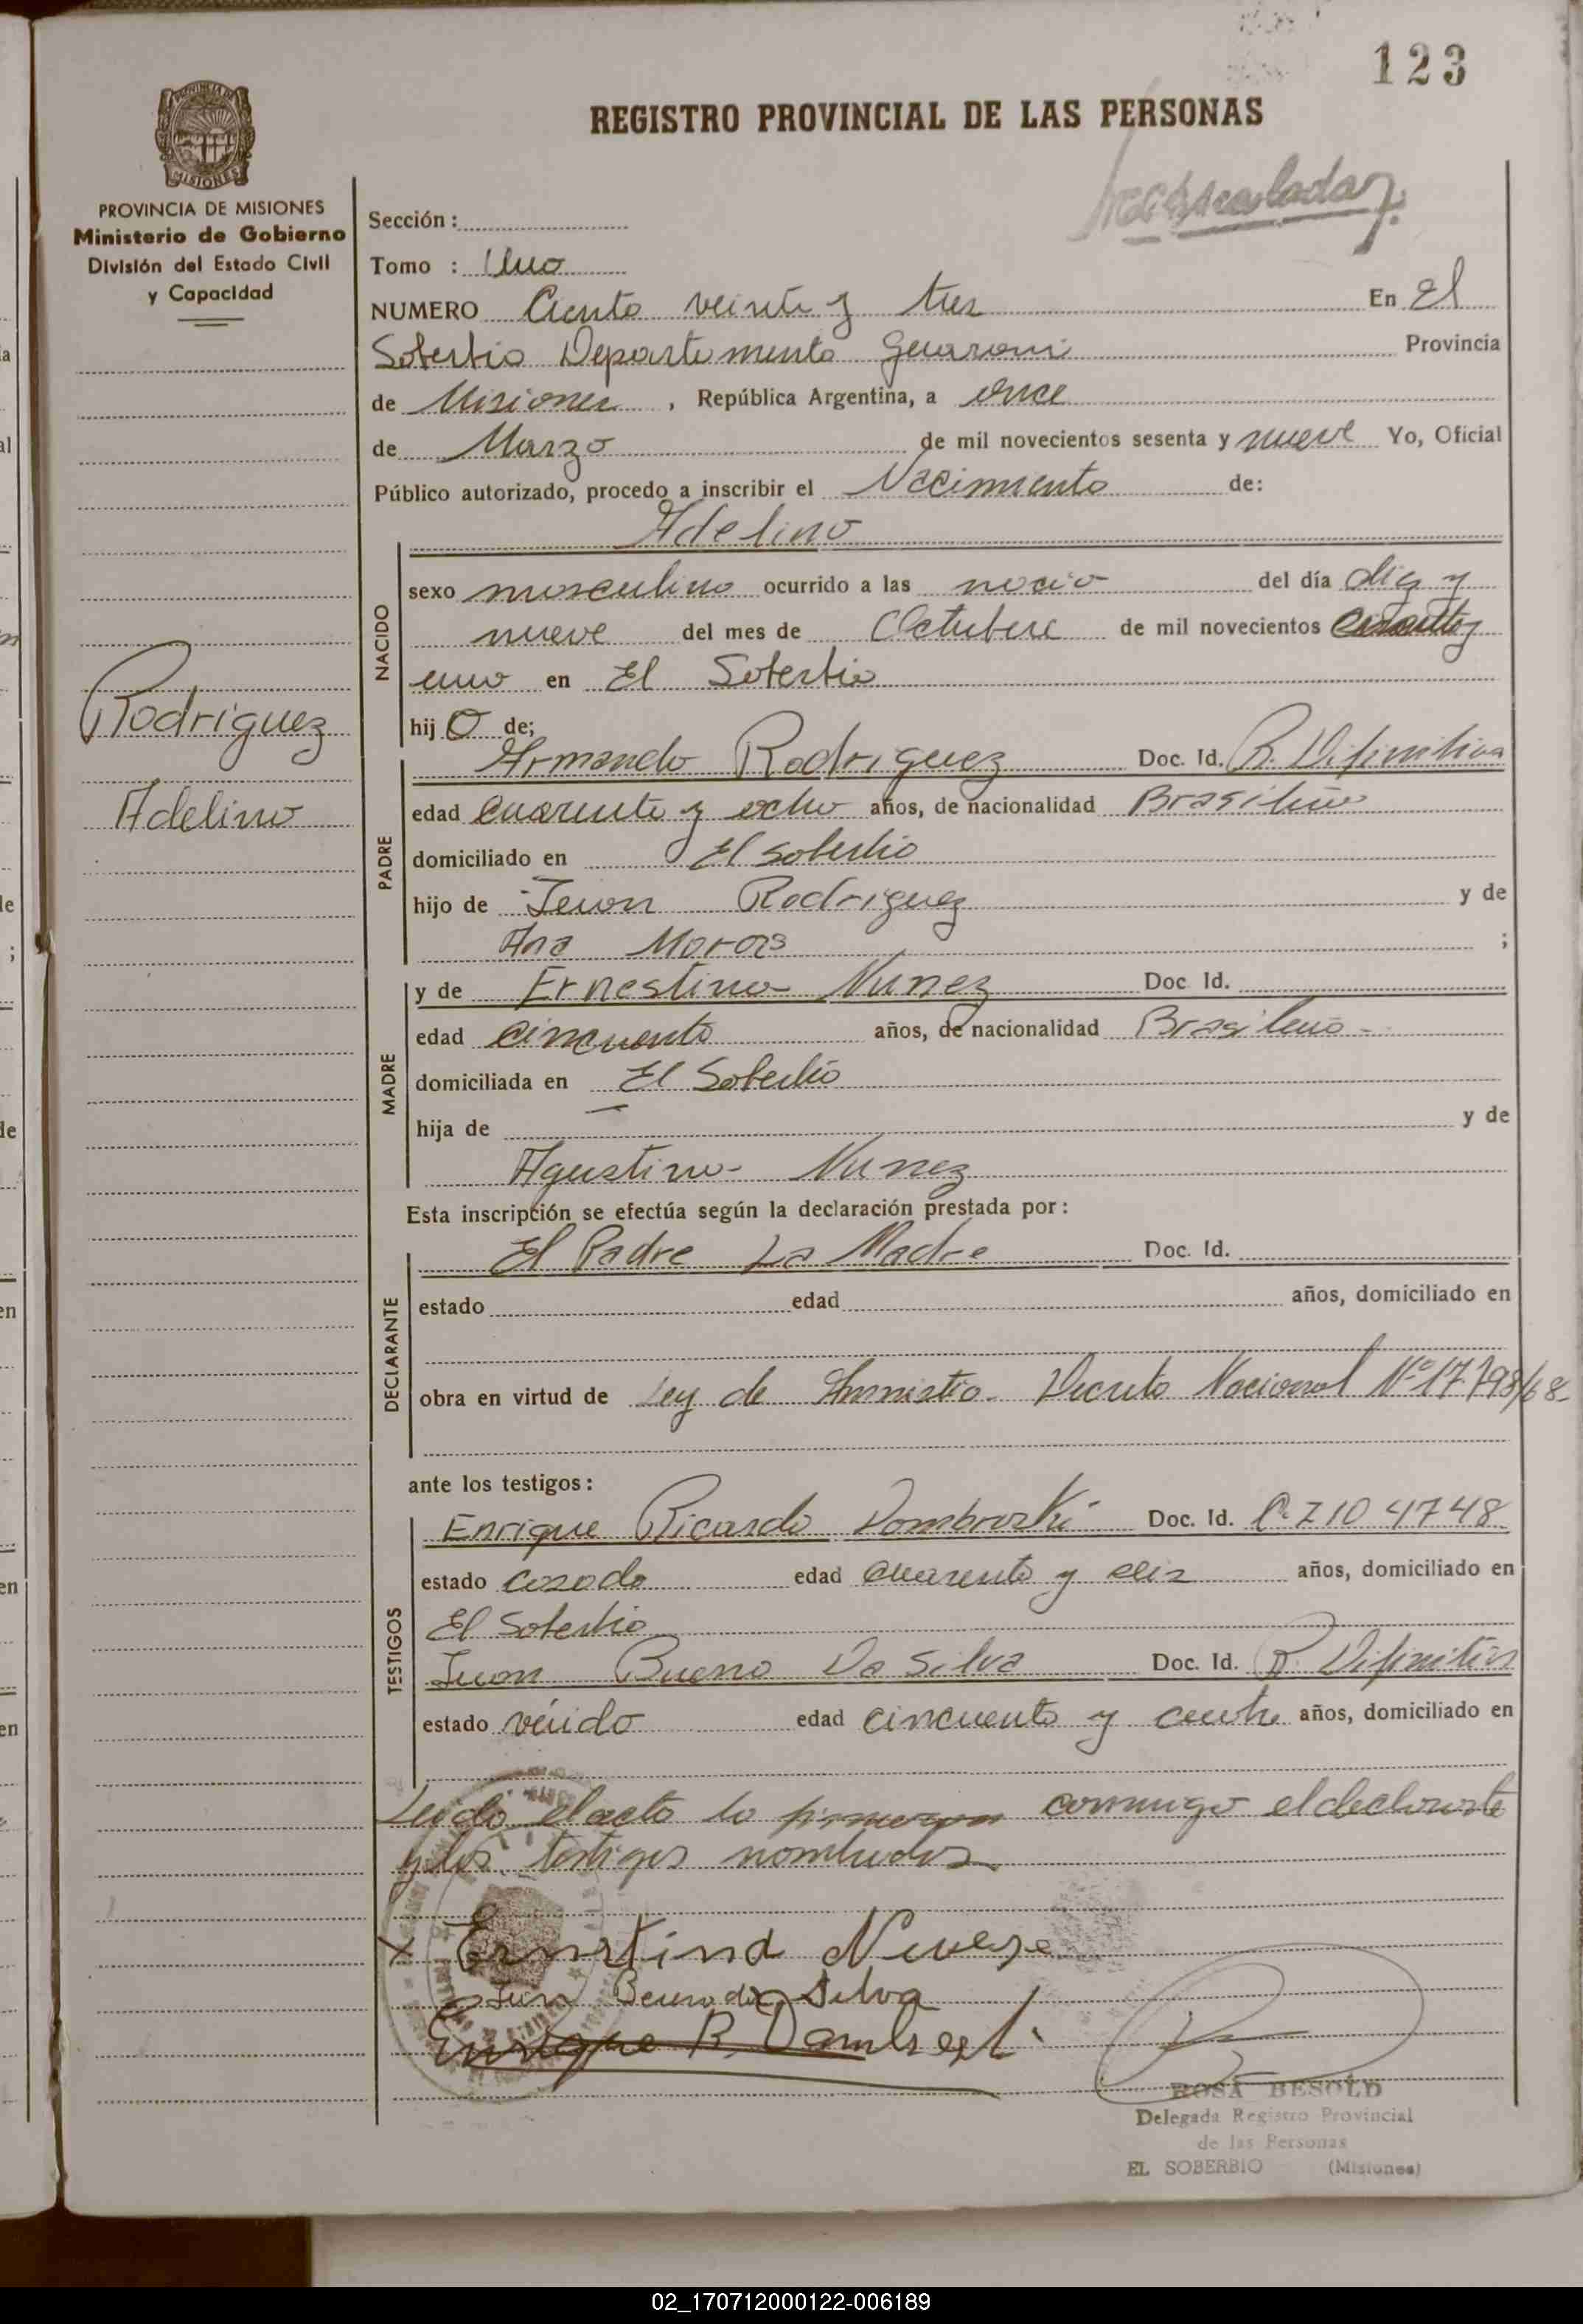 123
REGISTRO PROVINCIAL DE LAS PERSONAS
PROVINCIA DE MISIONES
Ministerio de Gobierno
División del Estado Civil
y Capacidad
Sección :
Tomo : Uno
NUMERO Ciento veinte y tres En El
Soberbio Departamento Guarani Provincia
de Misiones , República Argentina, a once
de Marzo de mil novecientos sesenta y nueve Yo, Oficial
Público autorizado, procedo a inscribir el Nacimiento de:
Adelino
NACIDO
sexo masculino ocurrido a las del día diez y
nueve del mes de Octubre de mil novecientos
uno en El Soberbio
hij o de;
Rodriguez
Adelino
PADRE
Armando Rodriguez Doc. Id. R. Difinitiva
edad cuarenta y ocho años, de nacionalidad Brasileño
domiciliado en El Soberbio
hijo de Juan Rodriguez y de
Ana Morais ;
MADRE
y de Ernestina Nunez Doc. Id.
edad cincuenta años, de nacionalidad Brasilena
domiciliada en El Soberbio
hija de — y de
Agustina Nunez
Esta inscripción se efectúa según la declaración prestada por :
DECLARANTE
El Padre La Madre Doc. Id.
estado edad años, domiciliado en
obra en virtud de Ley de Amnistia Decreto Nacional Nº 17.798/68
ante los testigos :
TESTIGOS
Enrique Ricardo Dombroski Doc. Id. 7104748
estado casado edad cuarenta y años, domiciliado en
El Soberbio
Juan Bueno Da Silva Doc. Id. R. Difinitiva
estado viudo edad cincuenta y cuatro años, domiciliado en
Leido el acto lo firmaron conmigo el declarante
y los testigos nombrados
x Ernestina
Silva
Enrique R.
ROSA BESOLD
Delegada Registro Provincial
de las Personas
EL SOBERBIO (Misiones)
02_170712000122-006189